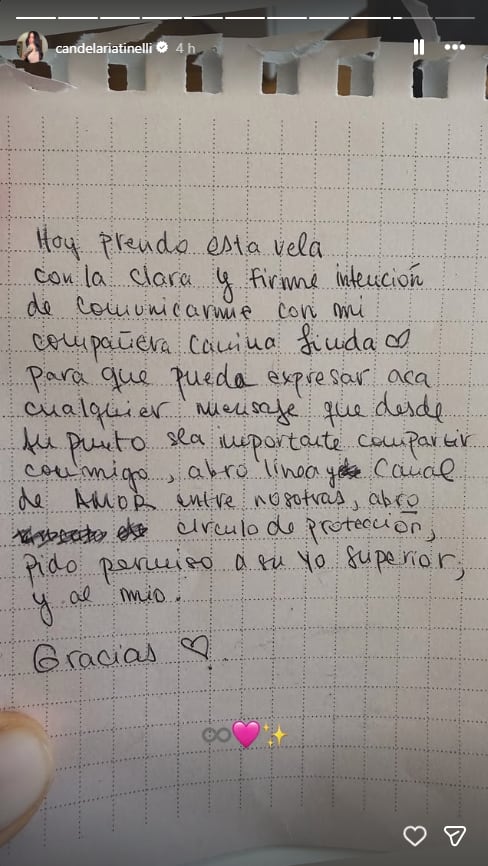 candelariatinelli 4 h
Hoy prendo esta vela
con la clara y firme intención
de comunicarme con mi
compañera canina linda
para que pueda expresar aca
cualquier mensaje que desde
su punto sea importante compartir
conmigo, abro linea y canal
de AMOR entre nosotras, abro
circulo de protección,
pido permiso a su yo superior,
y al mio.
Gracias